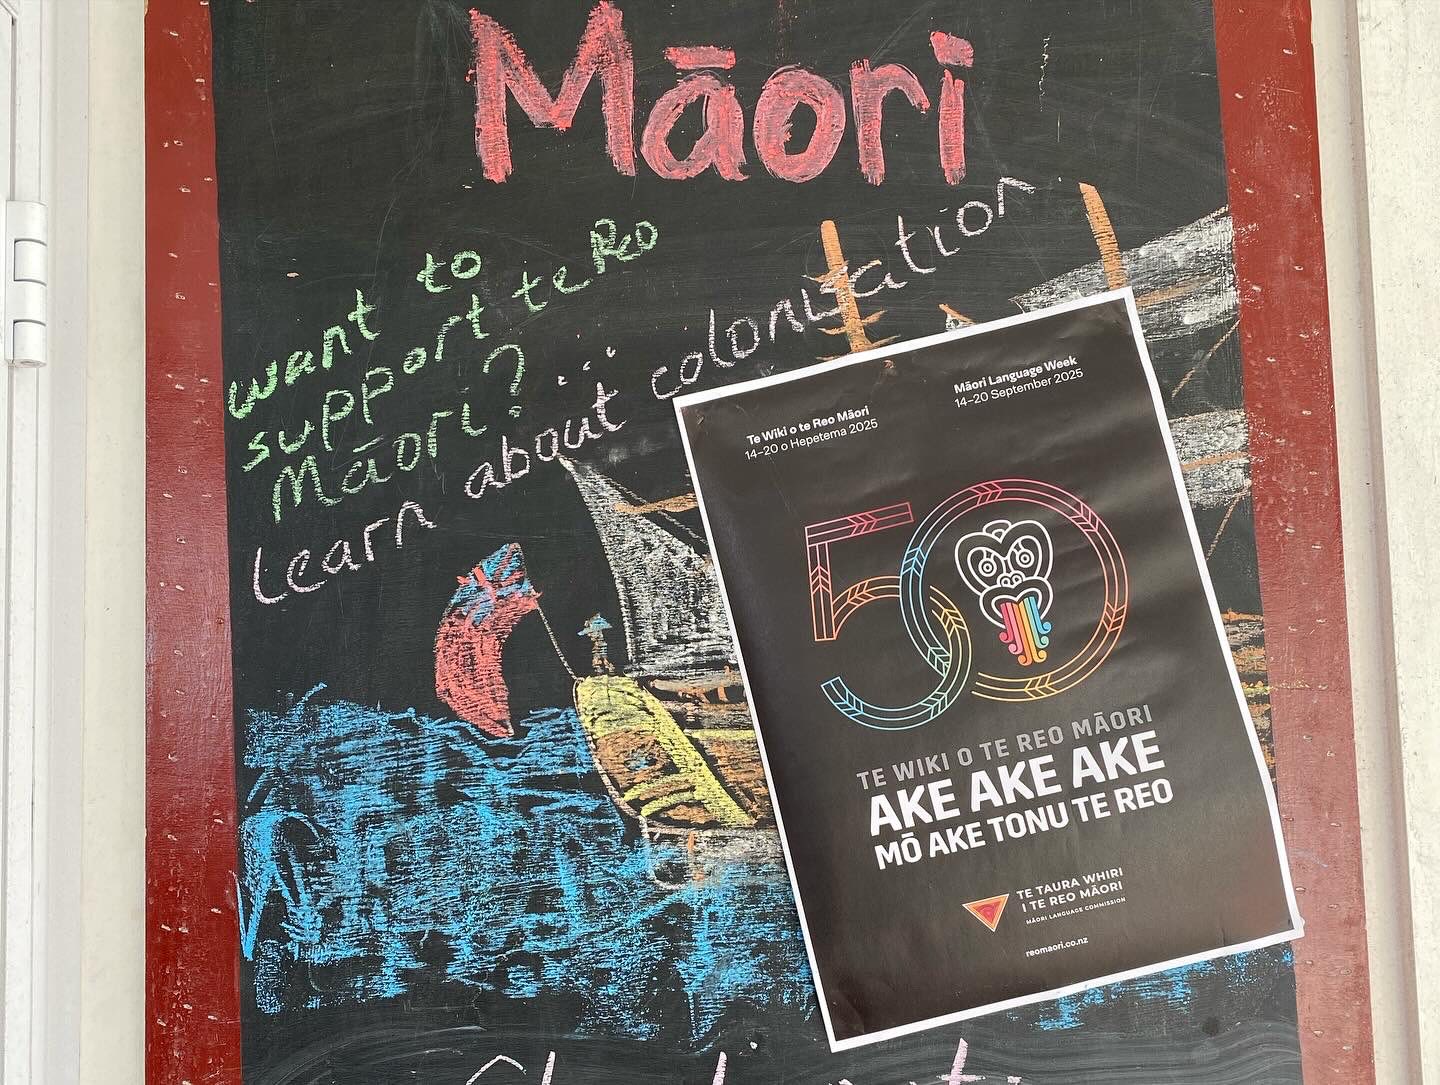 Māori
want to
support te Reo
Māori?
Learn about colonization
Te Wiki o te Reo Māori
14–20 o Hepetema 2025
Māori Language Week
14–20 September 2025
50
TE WIKI O TE REO MĀORI
AKE AKE AKE
MŌ AKE TONU TE REO
TE TAURA WHIRI
I TE REO MĀORI
MĀORI LANGUAGE COMMISSION
reomaori.co.nz